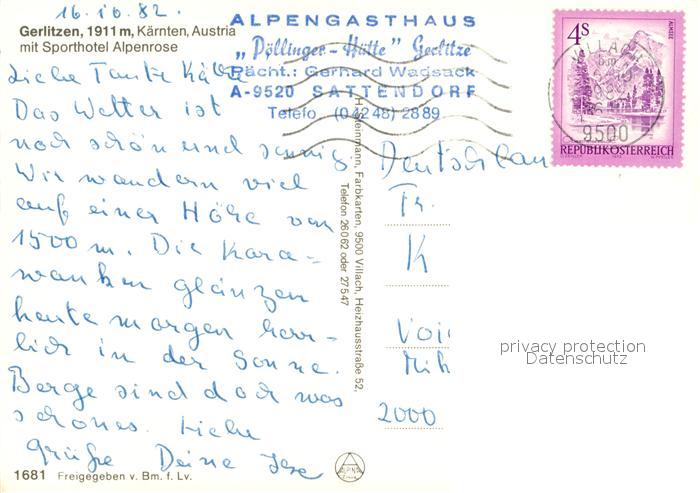 16.10.82.
Gerlitzen, 1911 m, Kärnten, Austria
mit Sporthotel Alpenrose
ALPENGASTHAUS
„Pöllinger-Hütte" Gerlitze
Pächt.: Gerhard Wadsack
A-9520 SATTENDORF
Telefo (04248) 2889
Liebe Tante Käthe
Das Wetter ist
noch schön und sonnig
Wir wandern viel
auf einer Höhe von
1500 m. Die Kara-
wanken glänzen
heute morgen herr-
lich in der Sonne.
Berge sind doch was
schönes. Liebe
Grüße Deine
1681 Freigegeben v. Bm. f. Lv.
Farbkarten, 9500 Villach, Heizhausstraße 52,
Telefon 26062 oder 27547
ALPINA
4S
ALMSEE
VILLACH
9500
REPUBLIK ÖSTERREICH
Deutschlan
Fr.
K
Voi
2000
privacy protection
Datenschutz